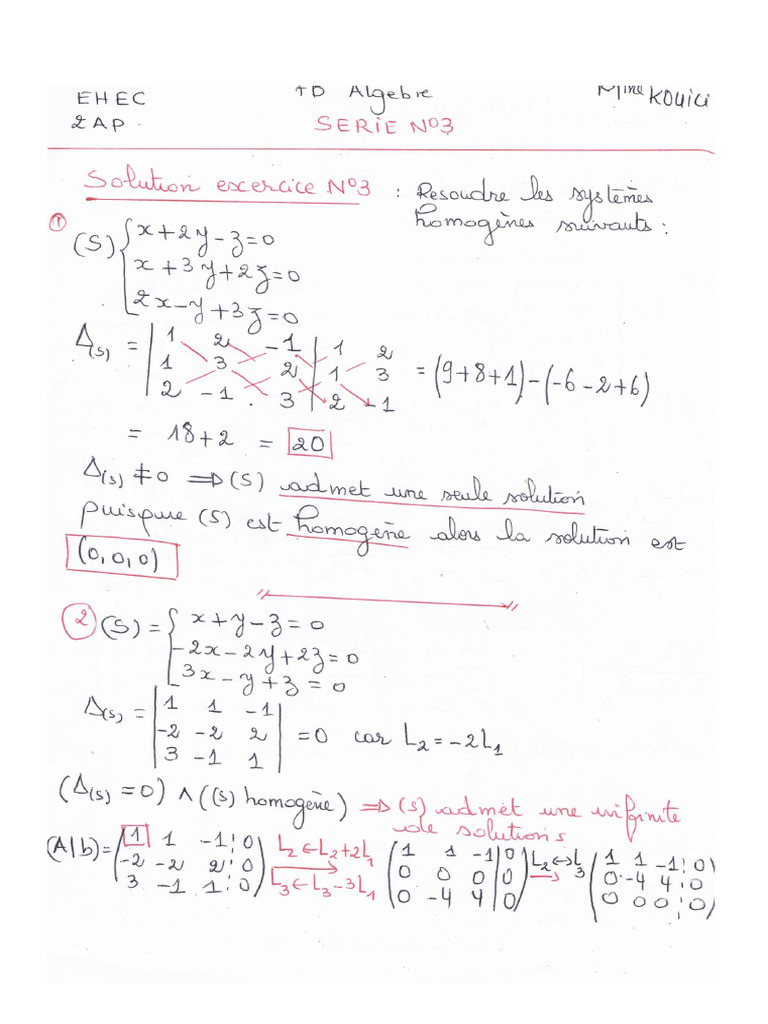 EHEC TD Algebre Mme KOUICI
2AP. SERIE N°3
Solution exercice N°3 : Resoudre les systèmes
homogènes suivants :
① (S) { x+2y-z=0
x+3y+2z=0
2x-y+3z=0
Δ(s) = | 1 2 -1 | 1 2
1 3 2 | 1 3 = (9+8+1)-(-6-2+6)
2 -1 . 3 | 2 -1
= 18+2 = 20
Δ(s) ≠ 0 ⇒ (S) admet une seule solution
puisque (S) est homogène alors la solution est
(0,0,0)
② (S) = { x+y-z=0
-2x-2y+2z=0
3x-y+z=0
Δ(s) = | 1 1 -1 |
| -2 -2 2 | = 0 car L2=-2L1
| 3 -1 1 |
(Δ(s) =0) ∧ ((S) homogène) ⇒ (S) admet une infinité
de solutions
(A|b)= ( 1 1 -1 ¦ 0 ) L2←L2+2L1 ( 1 1 -1 | 0 ) L2↔L3 ( 1 1 -1 ¦ 0 )
( -2 -2 2 ¦ 0 ) ( 0 0 0 | 0 ) ( 0 -4 4 ¦ 0 )
( 3 -1 1 ¦ 0 ) L3←L3-3L1 ( 0 -4 4 | 0 ) ( 0 0 0 ¦ 0 )